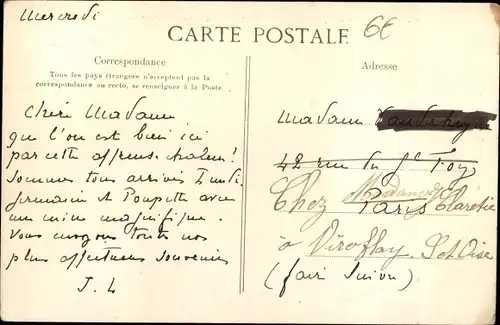 Mercredi
CARTE POSTALE
6€
Correspondance
Tous les pays étrangers n'acceptent pas la
correspondance au recto, se renseigner à la Poste
Chère Madame
que l'on est bien ici
par cette affreuse chaleur!
Sommes tous arrivés Lundi.
Germaine et Poupette avec
une mine magnifique.
Vous envoyons toutes nos
plus affectueux souvenirs
J. L
Adresse
Madame
42 rue du Gl Foy
Paris
Chez Claretie
à Viroflay. S et Oise
(faire suivre)